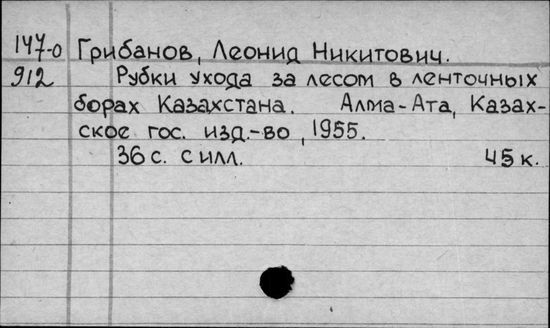 147-0 Грибанов, Леонид Никитович.
912 Рубки ухода за лесом в ленточных
борах Казахстана. Алма-Ата, Казах-
ское гос. изд.-во, 1955.
36 с. с илл. 45 к.